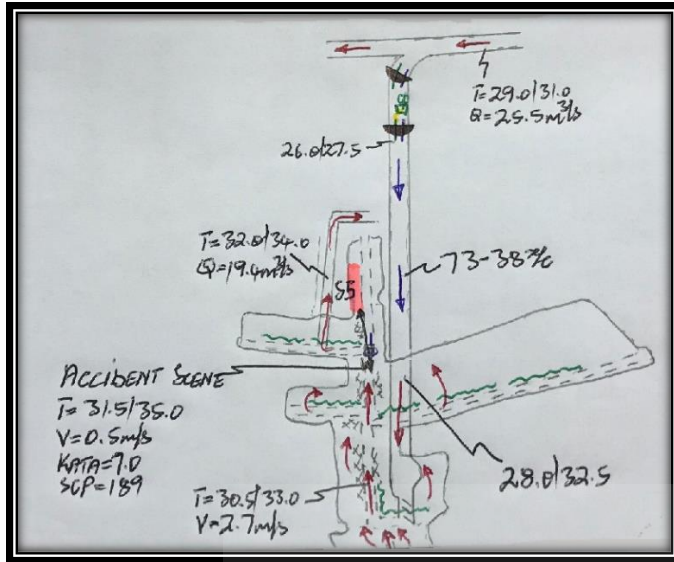 T=29.0/31.0
Q=25.5m³/s
26.0/27.5
T=32.0/34.0
Q=19.4m³/s
S5
73-38
ACCIDENT SCENE
T=31.5/35.0
V=0.5m/s
KATA=7.0
SCP=189
28.0/32.5
T=30.5/33.0
V=2.7m/s